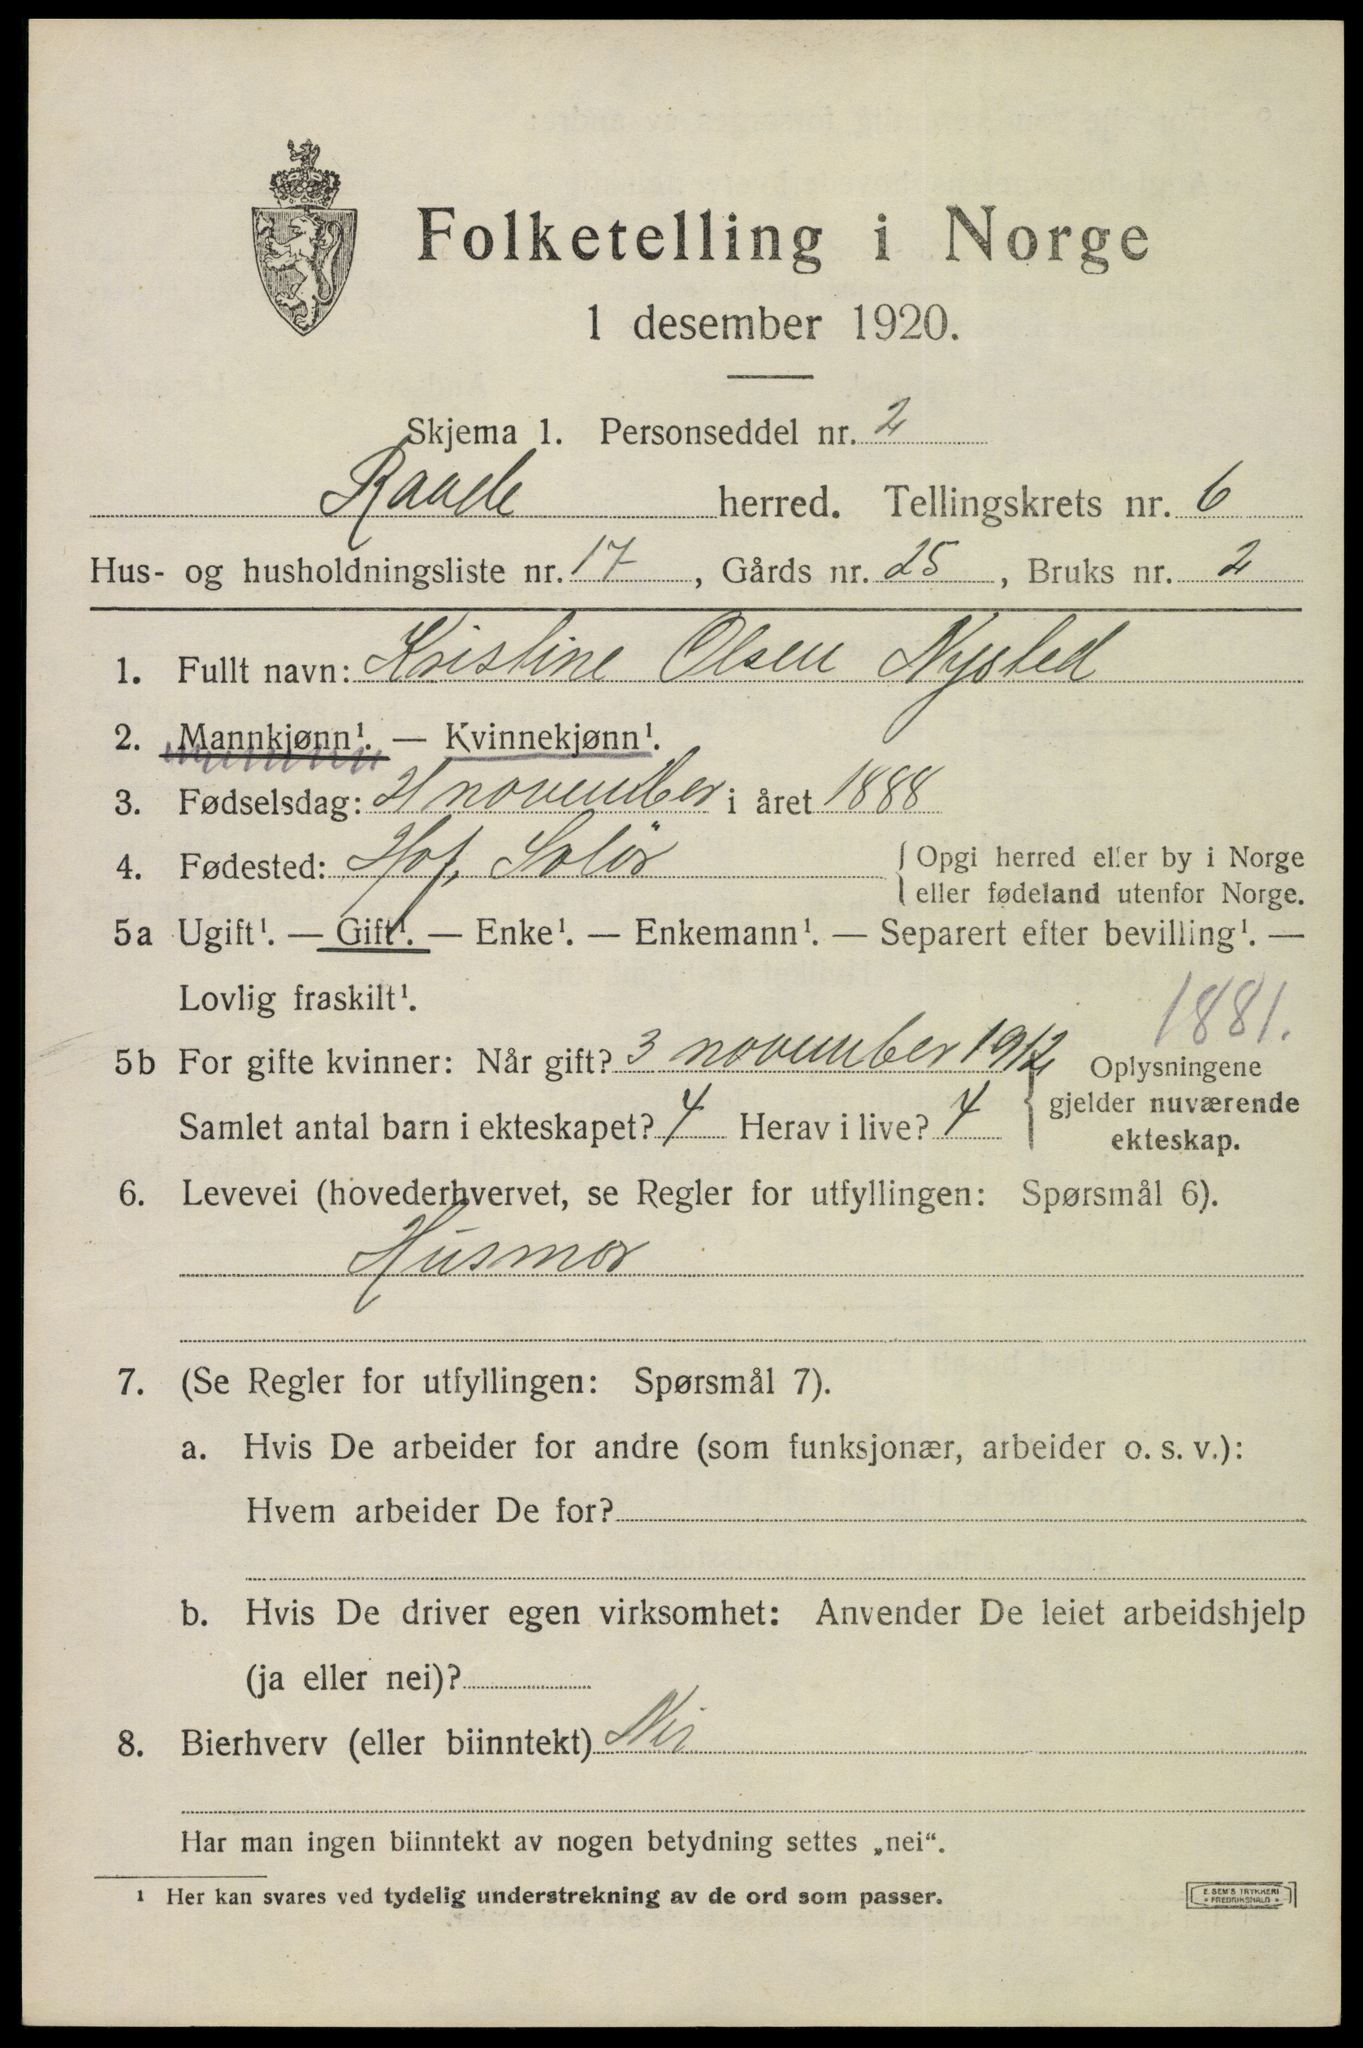 Folketelling i Norge
1 desember 1920.
Skjema 1. Personseddel nr. 2
Raade herred. Tellingskrets nr. 6
Hus- og husholdningsliste nr. 17, Gårds nr. 25, Bruks nr. 2
1. Fullt navn: Kristine Olsen Nysted
2. Mannkjønn¹. — Kvinnekjønn¹.
3. Fødselsdag: 21 november i året 1888
4. Fødested: Hof, Solör { Opgi herred eller by i Norge
eller fødeland utenfor Norge.
5a Ugift¹. — Gift¹. — Enke¹. — Enkemann¹. — Separert efter bevilling¹. —
Lovlig fraskilt¹.
1881.
5b For gifte kvinner: Når gift? 3 november 1912
Samlet antal barn i ekteskapet? 4 Herav i live? 4
{ Oplysningene
gjelder nuværende
ekteskap.
6. Levevei (hovederhvervet, se Regler for utfyllingen: Spørsmål 6).
Husmor
7. (Se Regler for utfyllingen: Spørsmål 7).
a. Hvis De arbeider for andre (som funksjonær, arbeider o. s. v.):
Hvem arbeider De for?
b. Hvis De driver egen virksomhet: Anvender De leiet arbeidshjelp
(ja eller nei)?
8. Bierhverv (eller biinntekt) Nei
Har man ingen biinntekt av nogen betydning settes „nei“.
¹ Her kan svares ved tydelig understrekning av de ord som passer.
E. SEM'S TRYKKERI
FREDRIKSHALD